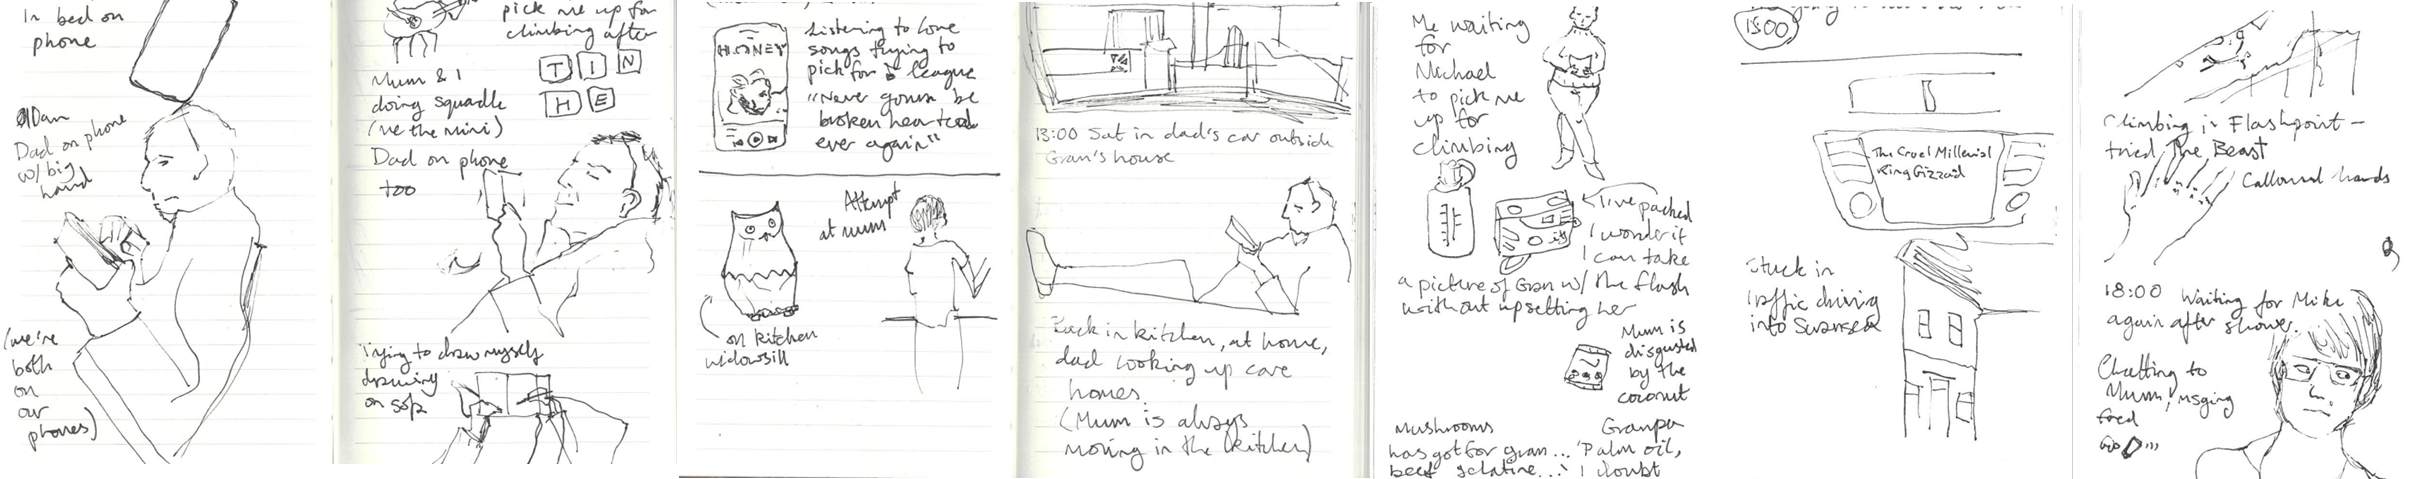 In bed on
phone
Dad on phone
w/ big
hand
(we're
both
on
our
phones)
pick me up for
climbing after
Mum & I
doing squadle
(me the mini)
T I N
H E
Dad on phone
too
Trying to draw myself
drawing
on sofa
HONEY
Listening to love
songs trying to
pick for league
"Never gonna be
broken hearted
ever again"
Attempt
at mum
on kitchen
widowsill
13:00 Sat in dad's car outside
Gran's house
Back in kitchen, at home,
dad looking up care
homes
(Mum is always
moving in the kitchen)
Me waiting
for
Michael
to pick me
up for
climbing
I've packed
I wonder if
I can take
a picture of Gran w/ the flash
without upsetting her
Mum is
disgusted
by the
coconut
Mushrooms Grandpa
has got for gran... 'Palm oil,
beef gelatine...' I doubt
15:00
The Cruel Millenial
King Gizzard
Stuck in
traffic driving
into Swansea
Climbing in Flashpoint -
tried The Beast
Calloused hands
18:00 Waiting for Mike
again after shower.
Chatting to
Mum, msging
fred